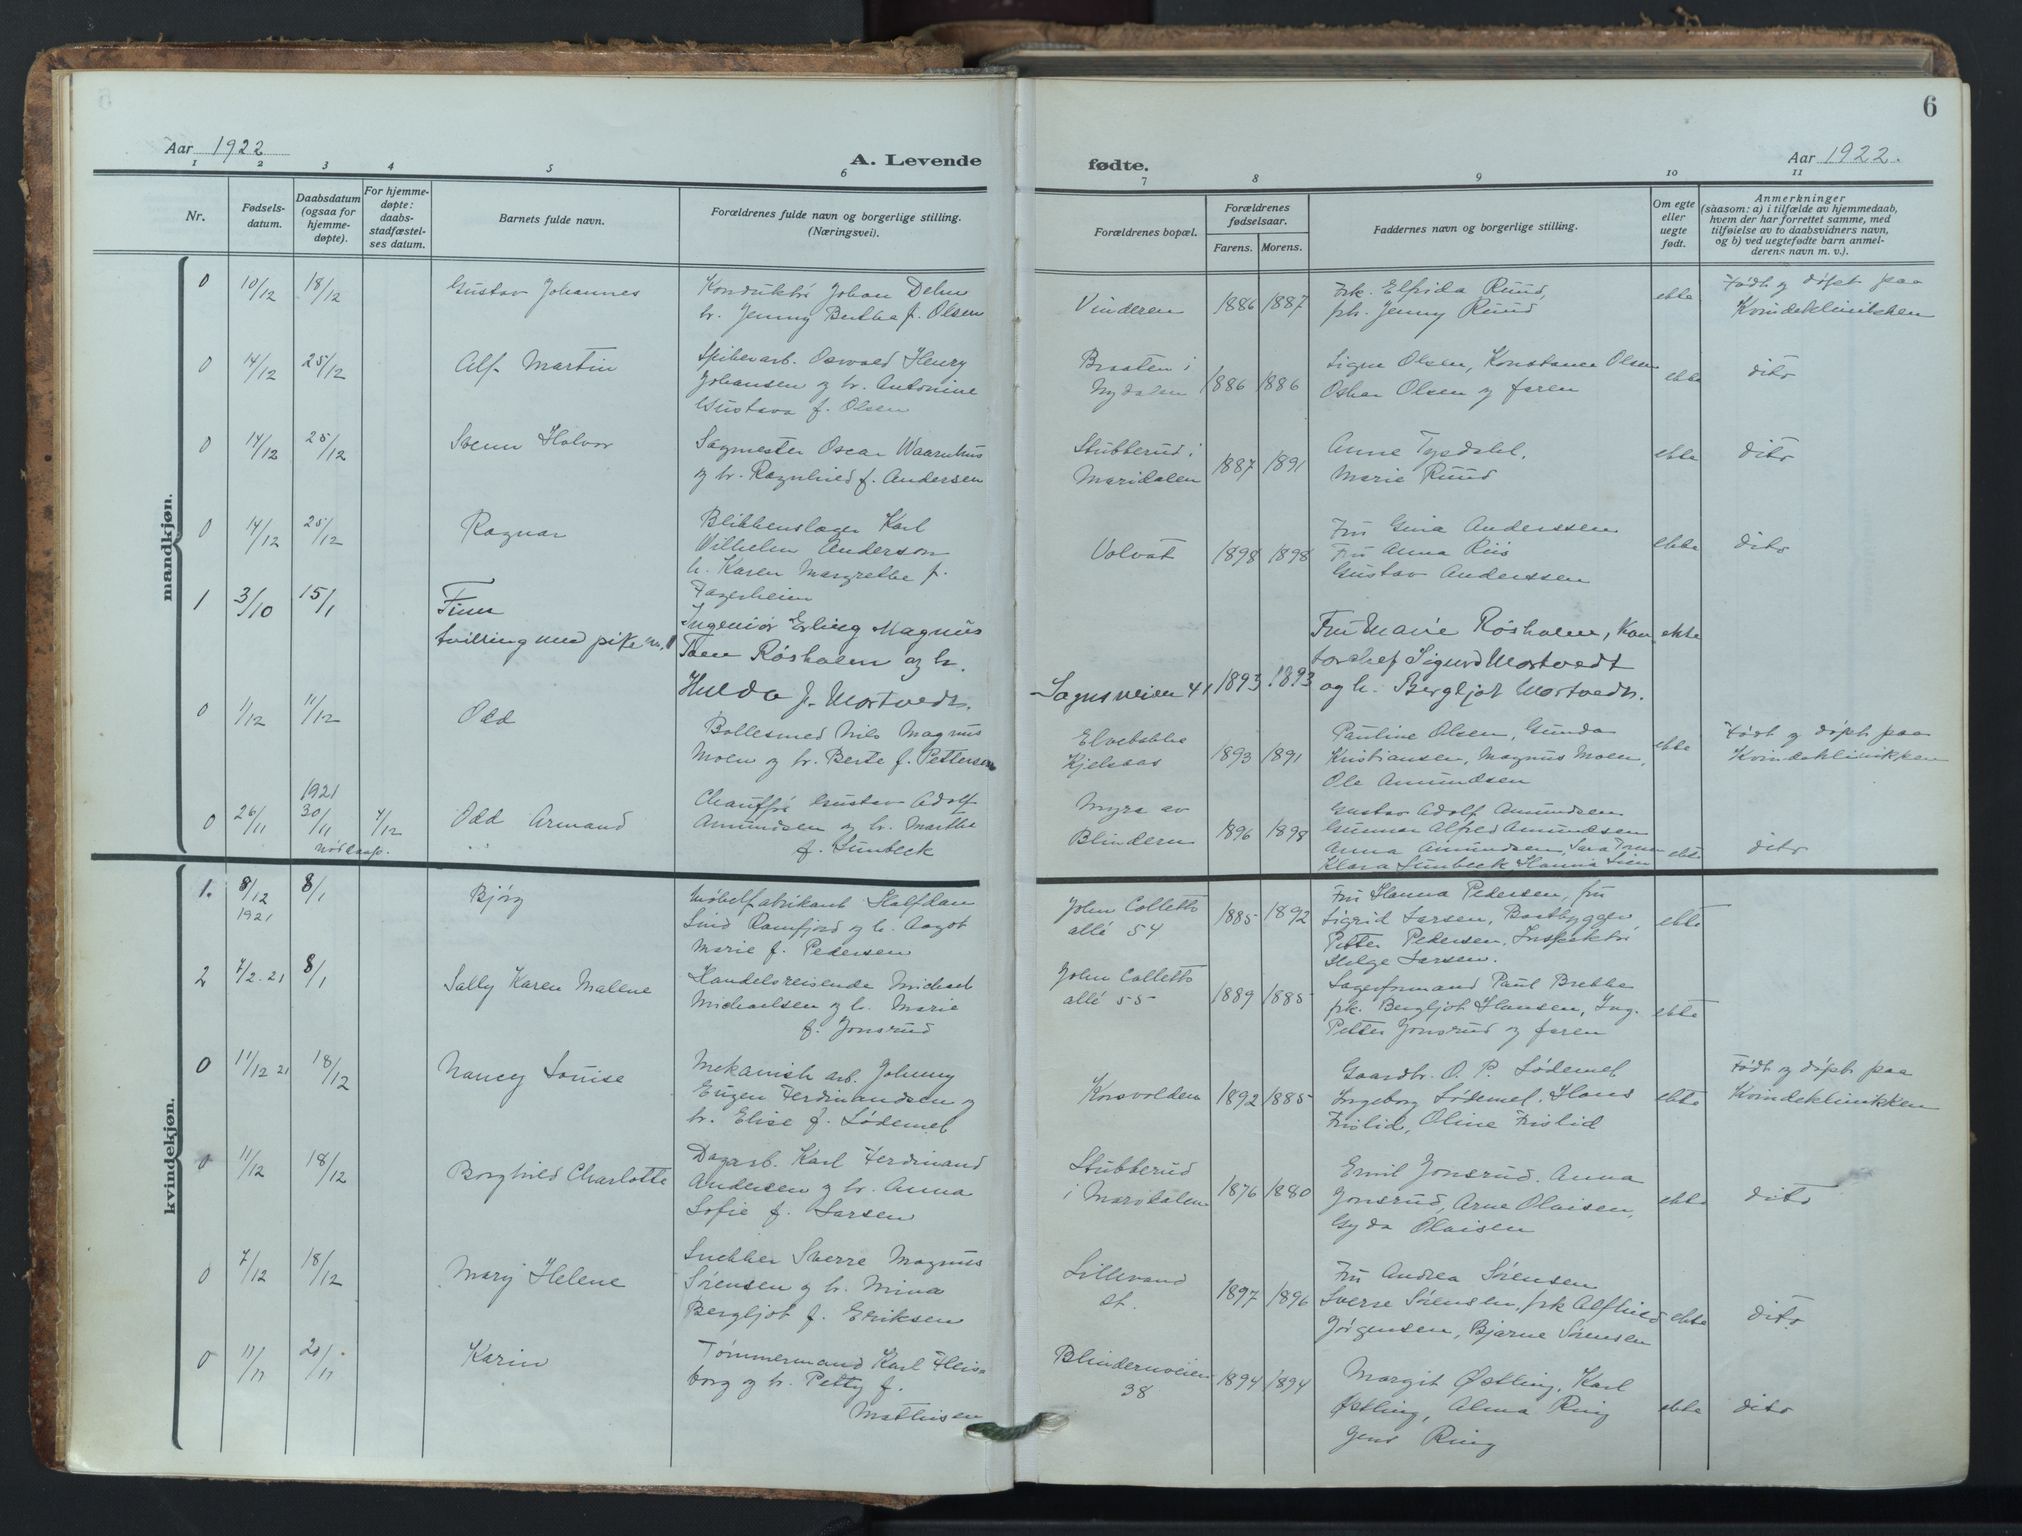 6
Aar 1922
A. Levende
fødte.
Aar 1922.
1 2 3 4 5 6 7 8 9 10 11
Nr.
Fødsels-
datum.
Daabsdatum
(ogsaa for
hjemme-
døpte).
For hjemme-
døpte:
daabs-
stadfæstel-
ses datum.
Barnets fulde navn.
Forældrenes fulde navn og borgerlige stilling.
(Næringsvei).
Forældrenes bopæl.
Forældrenes
fødselsaar.
Farens. Morens.
Faddernes navn og borgerlige stilling.
Om egte
eller
uegte
født.
Anmerkninger
(saasom: a) i tilfælde av hjemmedaab,
hvem der har forrettet samme, med
tilføielse av to daabsvidners navn,
og b) ved uegtefødte barn anmel-
derens navn m. v.).
mandkjøn.
0 10/12 18/12 Gustav Johannes
Konduktør Johan Dehn
h. Jenny Berthe f. Olsen
Vinderen 1886 1887
Frk. Elfrida Ruud,
frk. Jenny Ruud
ekte
Født og døpt paa
Kvindeklinikken
0 14/12 25/12 Alf Martin
Spikerarb. Oswald Henry
Johansen og h. Antonine
Gustava f. Olsen
Braaten i
Nydalen 1886 1886
Signe Olsen, Konstance Olsen
Oskar Olsen og faren
ekte dito
0 14/12 25/12 Svenn Halvor
Sagmester Oscar Waarnhus
og h. Ragnhild f. Andersen
Stubberud i
Maridalen 1887 1891
Anne Tysdahl,
Marie Ruud
ekte dito
0 14/12 25/12 Ragnar
Blikkenslager Karl
Vilhelm Anderson
h. Karen Margrethe f.
Fagerheim
Volvat 1898 1898
Fru Gina Anderssen
Fru Anna Riis
Gustav Anderssen
ekte dito
1 3/10 15/1 Finn
tvilling med pike nr. 1
Ingeniør Erling Magnus
Røsholm og h.
Hulda f. Mortvedt.
Sagnsveien 41 1893 1893
Fru Marie Røsholm, Kon
torchef Sigurd Mortvedt
og h. Bergljot Mortvedt.
ekte
0 1/12 11/12 Odd
Boltesmed Nils Magnus
Moen og h. Berte f. Pettersen
Elvebakke
Kjelsaas 1893 1891
Pauline Olsen, Gunda
Kristiansen, Magnus Moen,
Ole Amundsen
ekte
Født og døpt paa
Kvindeklinikken
0 26/11 1921 30/11 4/12 Odd Armand
nøddaap.
Chauffør Gustav Adolf
Amundsen og h. Marthe
f. Lunbeck
Myra av
Blindern 1896 1898
Gustav Adolf Amundsen
Gunnar Alfred Amundsen
Anna Amundsen, Sara
Klara Lunbeck, Hanna Lien
ekte dito
kvindekjøn.
1. 8/12 1921 8/1 Bjørg
Møbelfabrikant Halfdan
Lind Ramfjord og h. Aagot
Marie f. Pedersen
John Colletts
allé 54 1885 1892
Fru Hanna Pedersen, fru
Sigrid Larsen, Baatbygger
Petter Pedersen, Inspektør
Helge Larsen.
ekte
2 7/2. 21 8/1 Sally Karen Malene
Handelsreisende Michael
Michaelsen og h. Marie
f. Jonsrud
John Colletts
allé 55 1889 1885
Sagerformand Paul Brekke
frk. Bergljot Hansen, Ing.
Petter Jonsrud og faren
ekte
0 11/12 21 18/12 Nancy Louise
Mekanisk arb. Johnny
Eugen Ferdinandsen og
h. Elise f. Lødemel
Korsvolden 1892 1885
Gaardbr. O. P. Lødemel
Ingeborg Lødemel, Hans
Frislid, Oline Frislid
ekte
Født og døpt paa
Kvindeklinikken
0 11/12 18/12 Borghild Charlotte
Dagarb. Karl Ferdinand
Andersen og h. Anna
Sofie f. Larsen
Stubberud
i Maridalen 1876 1880
Emil Jonsrud. Anna
Jonsrud, Arne Olaisen,
Gyda Olaisen
ekte dito
0 7/12 18/12 Mary Helene
Snekker Sverre Magnus
Sørensen og h. Mina
Bergljot f. Eriksen
Lillevand
st. 1897 1896
Fru Andrea Sørensen
Sverre Sørensen, frk Alfhild
Jørgensen, Bjarne Sørensen
ekte dito
0 11/11 20/11 Karin
Tømmermand Karl Heis-
borg og h. Petty f.
Mathisen
Blindernveien
38 1894 1894
Margit Østling, Karl
Østling, Alma Ring
Jens Ring
ekte dito